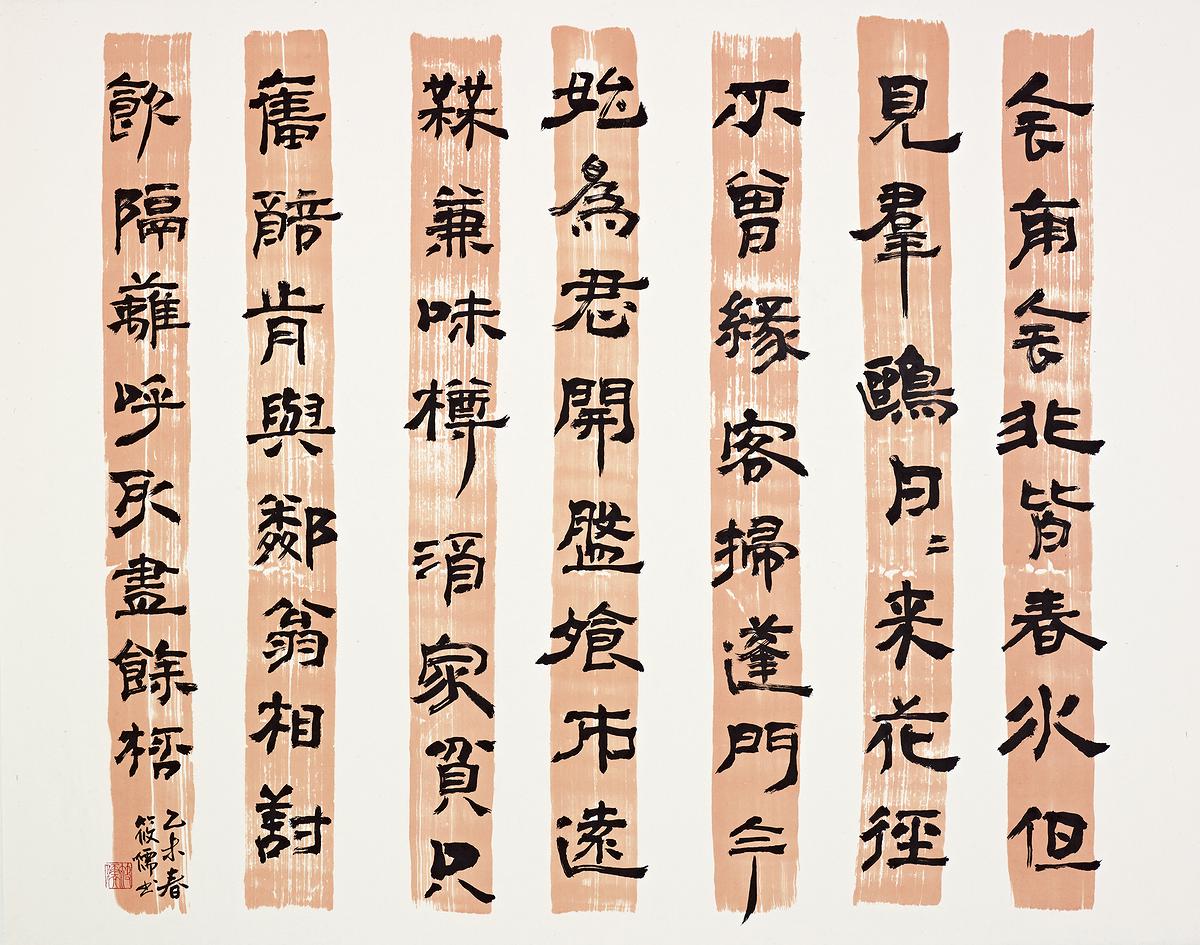 舍南舍北皆春水但
見羣鷗日〻来花徑
不曾緣客掃蓬門今
始為君開盤飧市遠
無兼味樽酒家貧只
舊醅肯與鄰翁相對
飲隔蘺呼取盡餘桮
乙未春
筱儒书